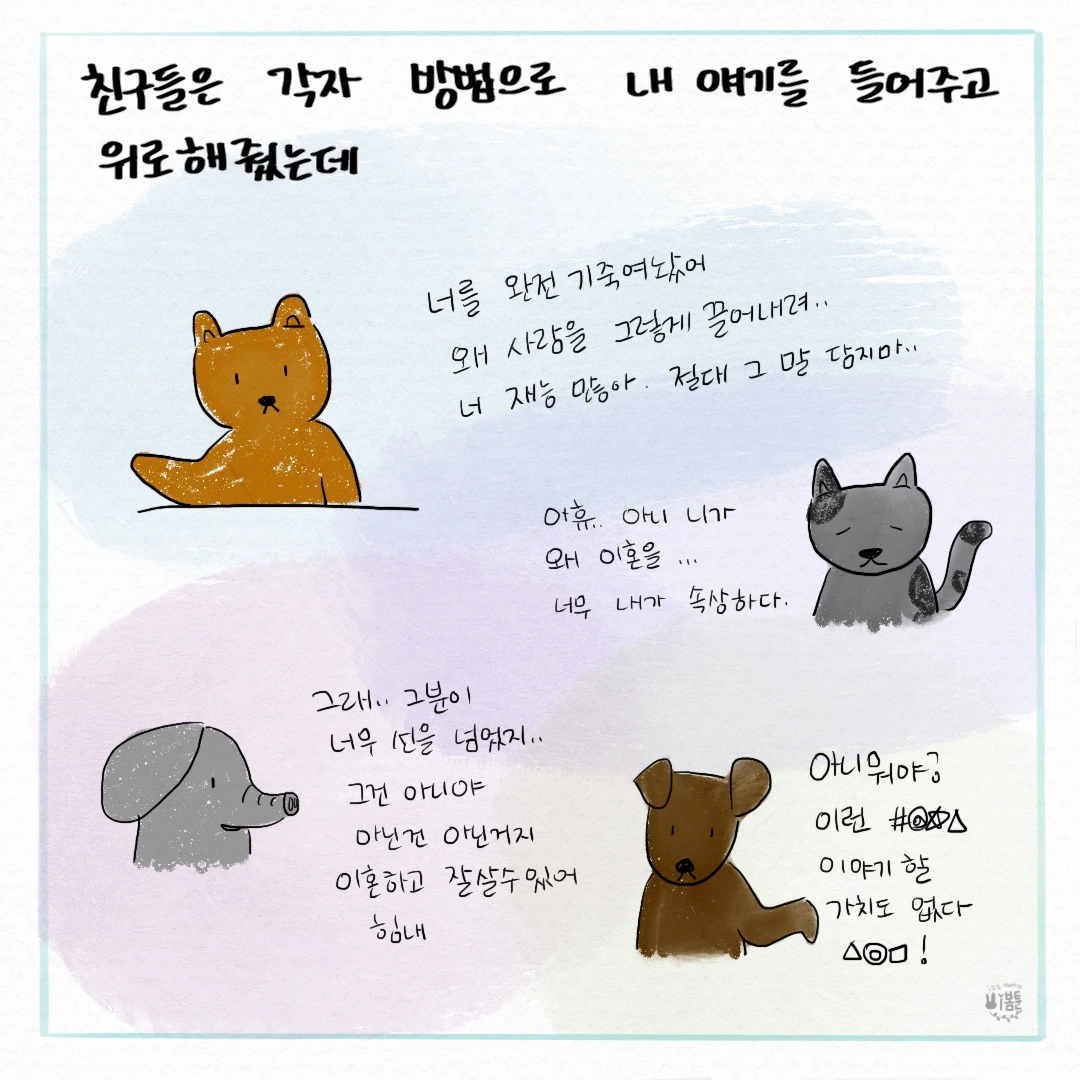 친구들은 각자 방법으로 내 얘기를 들어주고
위로해줬는데
너를 완전 기죽여놨어
왜 사람을 그렇게 끌어내려..
너 재능 많아. 절대 그 말 담지마..
아휴.. 아니 니가
왜 이혼을 ...
너무 내가 속상하다.
그래.. 그분이
너무 선을 넘었지..
그건 아니야
아닌건 아닌거지
이혼하고 잘살수있어
힘내
아니뭐야
이런 #◎☆△
이야기 할
가치도 없다
△◎□!
비봄툰